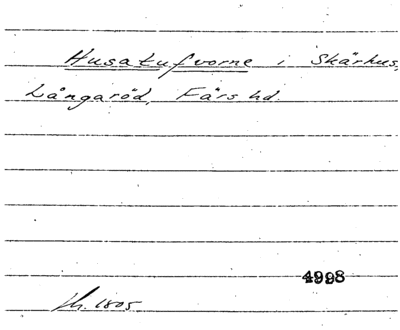 Husatufvorne i Skärhus,
Långaröd, Färs hd.
4998
th. 1805